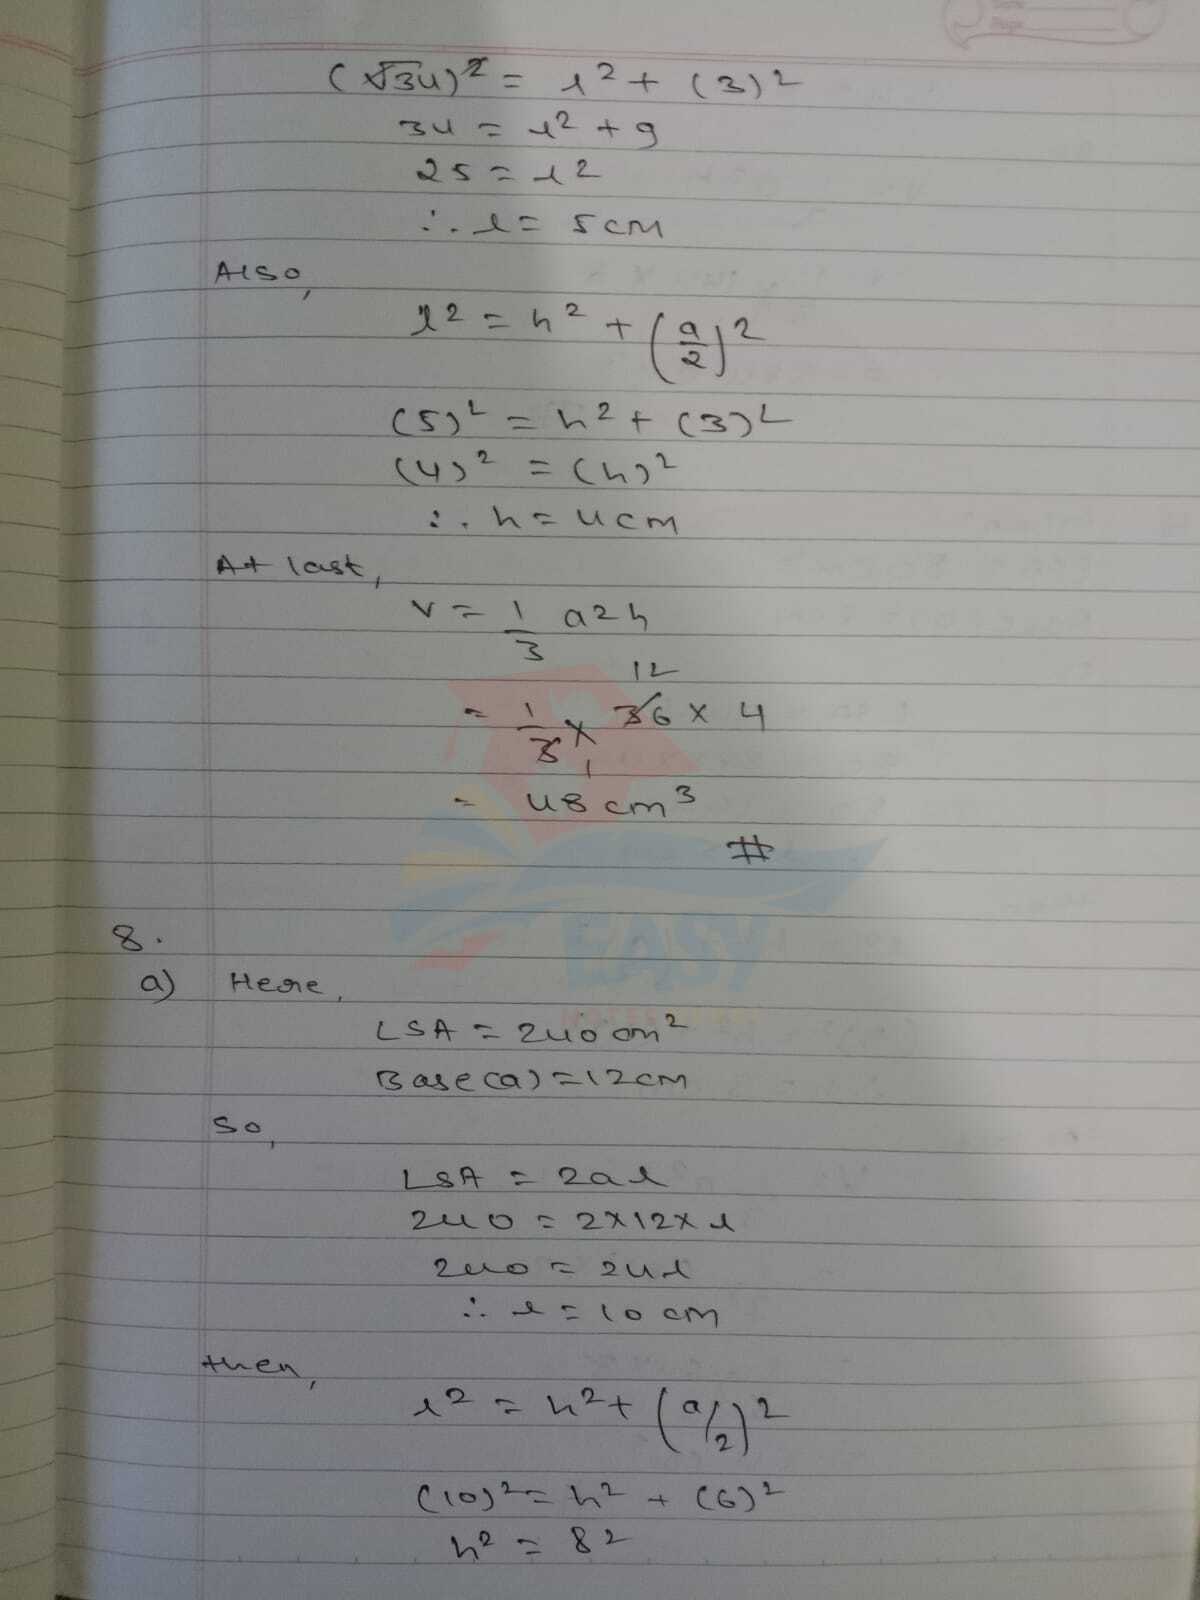 (√34)² = l² + (3)²
34 = l² + 9
25 = l²
∴ l = 5 cm
Also,
l² = h² + (a/2)²
(5)² = h² + (3)²
(4)² = (h)²
∴ h = 4 cm
At last,
V = 1/3 a2h
12
= 1/3 × 36 × 4
1
= 48 cm³
#
8.
a) Here,
LSA = 240 cm²
Base (a) = 12 cm
So,
LSA = 2al
240 = 2×12×l
240 = 24l
∴ l = 10 cm
then,
l² = h² + (a/2)²
(10)² = h² + (6)²
h² = 8²
EASY
NOTES